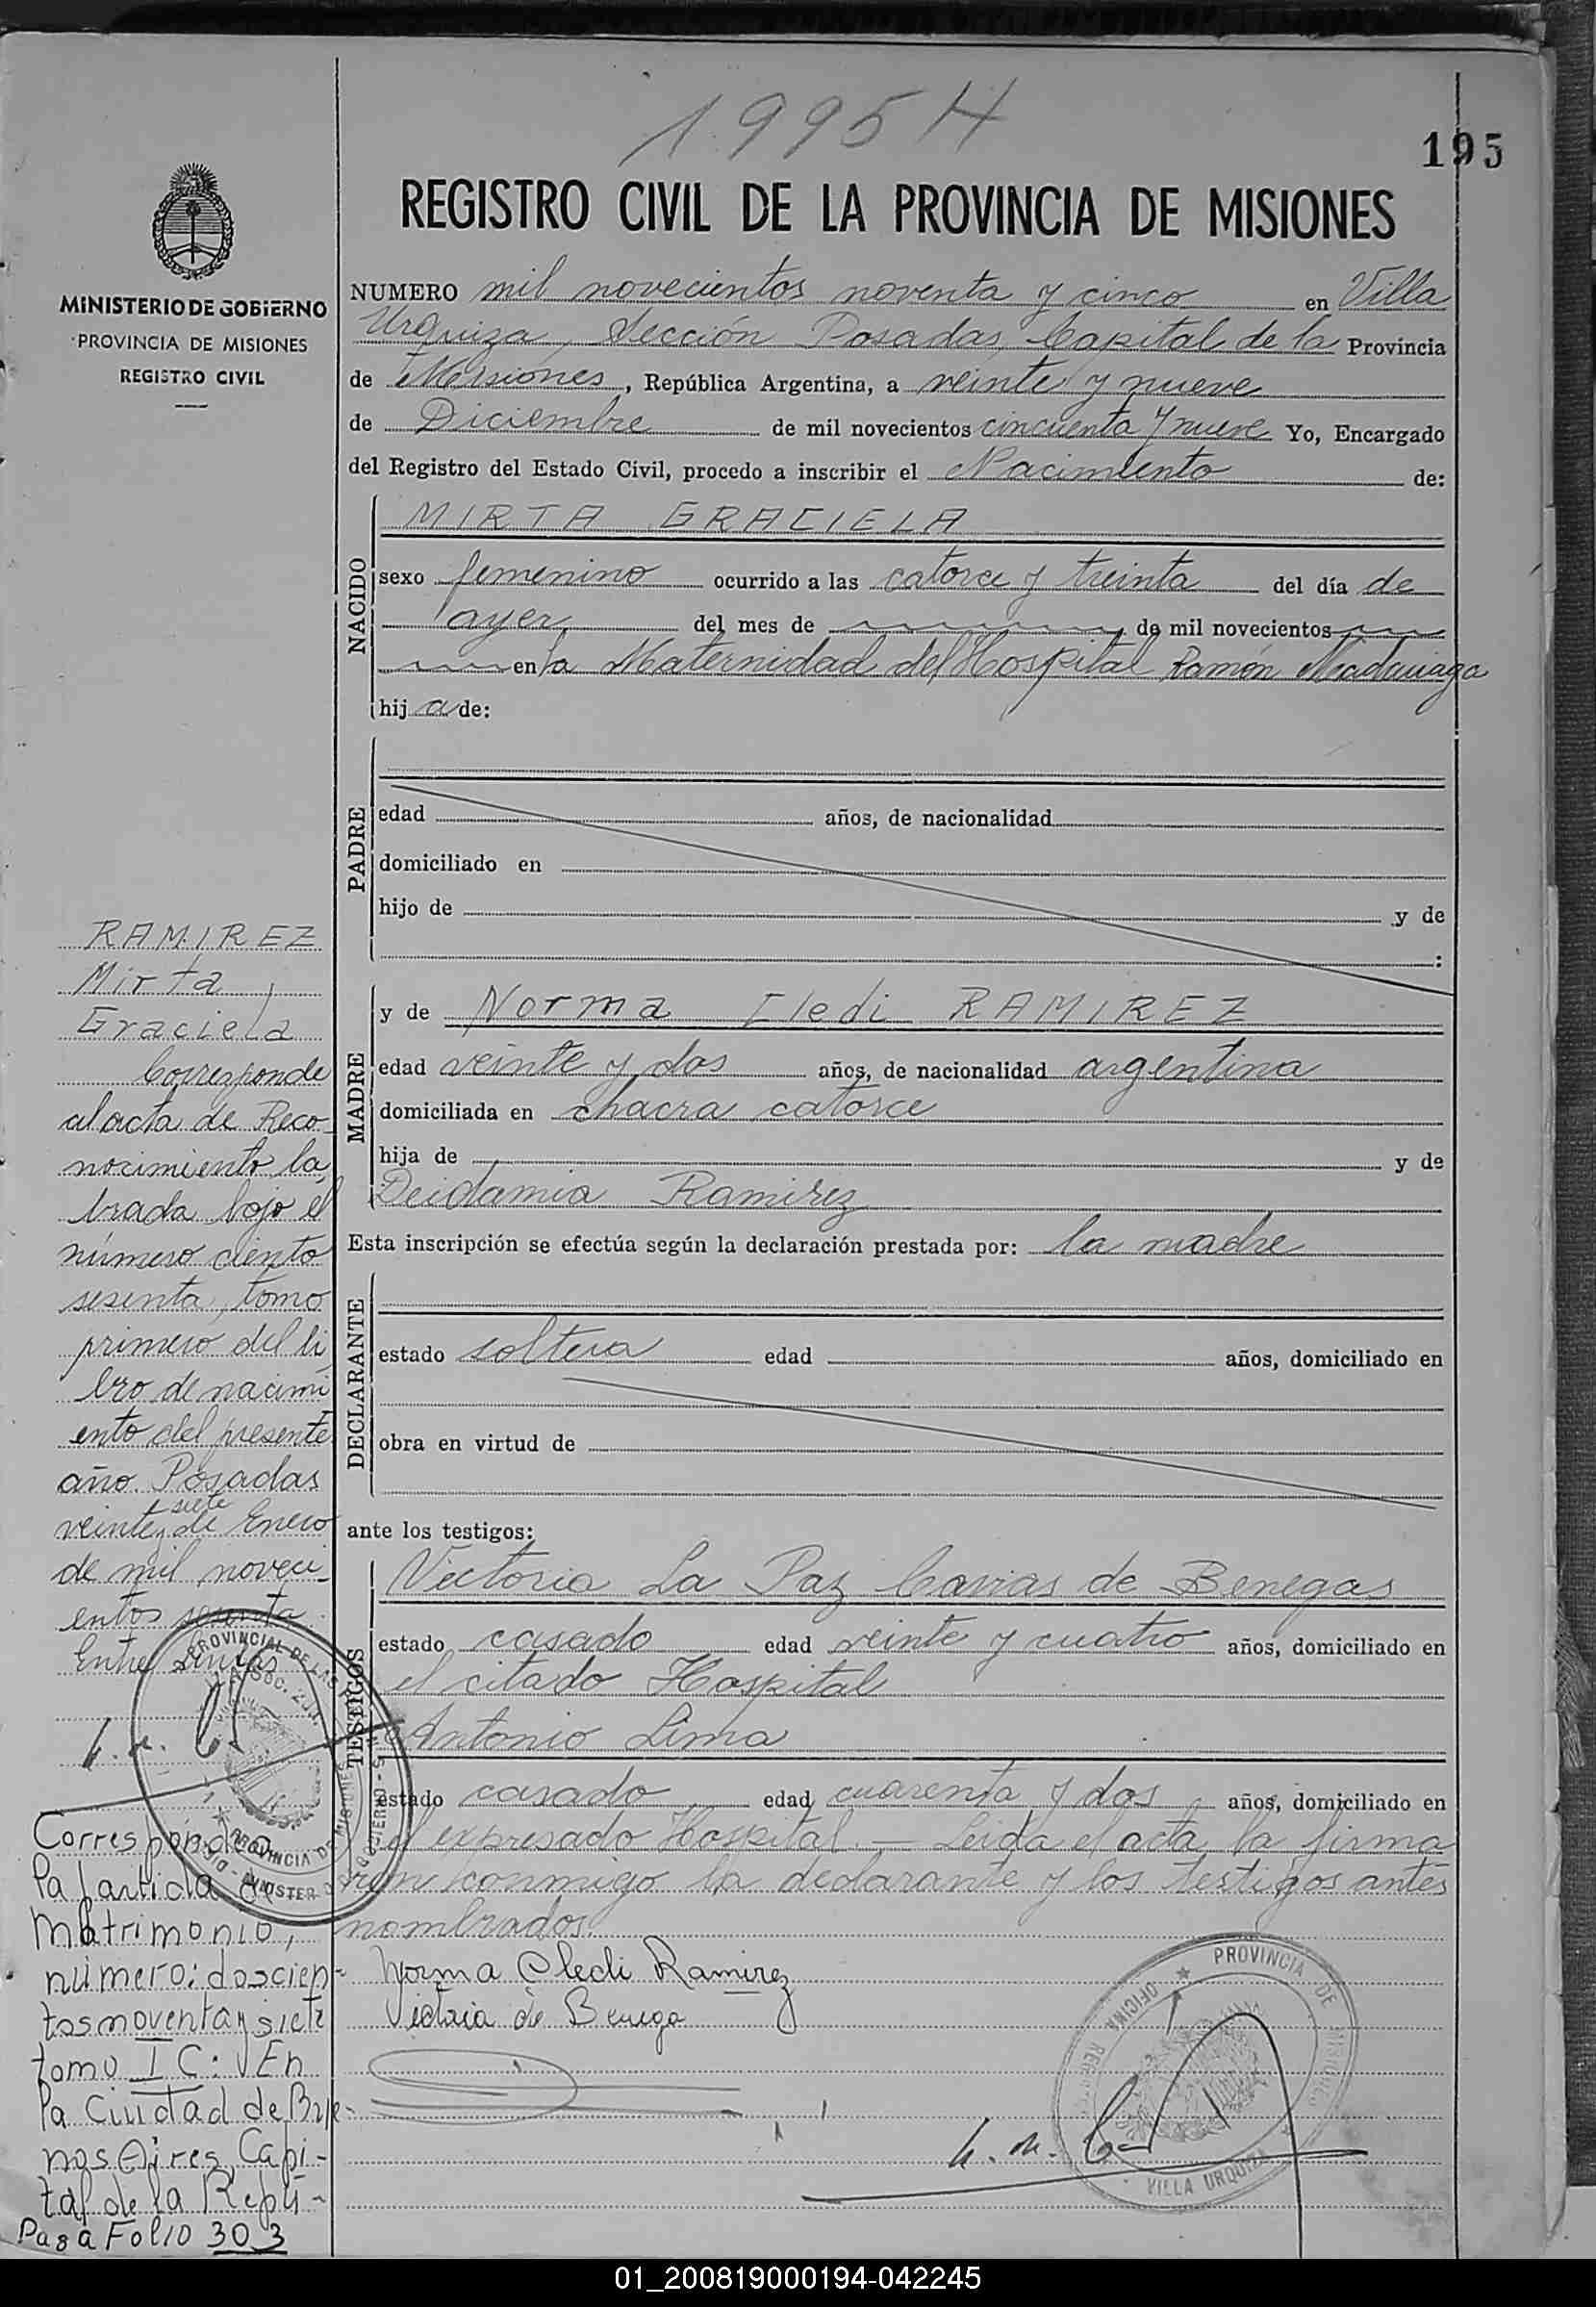 1995 H
195
REGISTRO CIVIL DE LA PROVINCIA DE MISIONES
MINISTERIO DE GOBIERNO
PROVINCIA DE MISIONES
REGISTRO CIVIL
NUMERO mil novecientos noventa y cinco en Villa
Urquiza, Sección Posadas, Capital de la Provincia
de Misiones, República Argentina, a veinte y nueve
de Diciembre de mil novecientos cincuenta y nueve Yo, Encargado
del Registro del Estado Civil, procedo a inscribir el Nacimiento de:
NACIDO
MIRTA GRACIELA
sexo femenino ocurrido a las catorce y treinta del día de
ayer, del mes de de mil novecientos
en la Maternidad del Hospital Ramón Madariaga
hija de:
PADRE
edad años, de nacionalidad
domiciliado en
hijo de y de
:
MADRE
y de Norma Cledi RAMIREZ
edad veinte y dos años, de nacionalidad argentina
domiciliada en chacra catorce
hija de y de
Deidamia Ramirez
Esta inscripción se efectúa según la declaración prestada por: la madre
DECLARANTE
estado soltera edad años, domiciliado en
obra en virtud de
ante los testigos:
TESTIGOS
Victoria La Paz Carias de Benegas
estado casado edad veinte y cuatro años, domiciliado en
el citado Hospital
Antonio Lima
estado casado edad cuarenta y dos años, domiciliado en
el expresado Hospital.— Leida el acta, la firma
ron conmigo la declarante y los testigos antes
nombrados.
Norma Cledi Ramirez
Victoria de Benega
PROVINCIA DE MISIONES
OFICINA
VILLA URQUIZA
RAMIREZ
Mirta
Graciela
Corresponde
al acta de Reco-
nocimiento la
brada bajo el
número ciento
sesenta, tomo
primero del li
bro de nacimi
ento del presente
año. Posadas
siete
veinte y de Enero
de mil noveci-
entos sesenta.
Entre lineas
PROVINCIAL DE LAS
PROVINCIA DE MISIONES
Corresponde a
la partida de
Matrimonio,
número: doscien-
tos noventa y siete
tomo I C: En
la Ciudad de Bue-
nos Aires, Capi-
tal de la Repú-
Pasa Folio 303
01_200819000194-042245